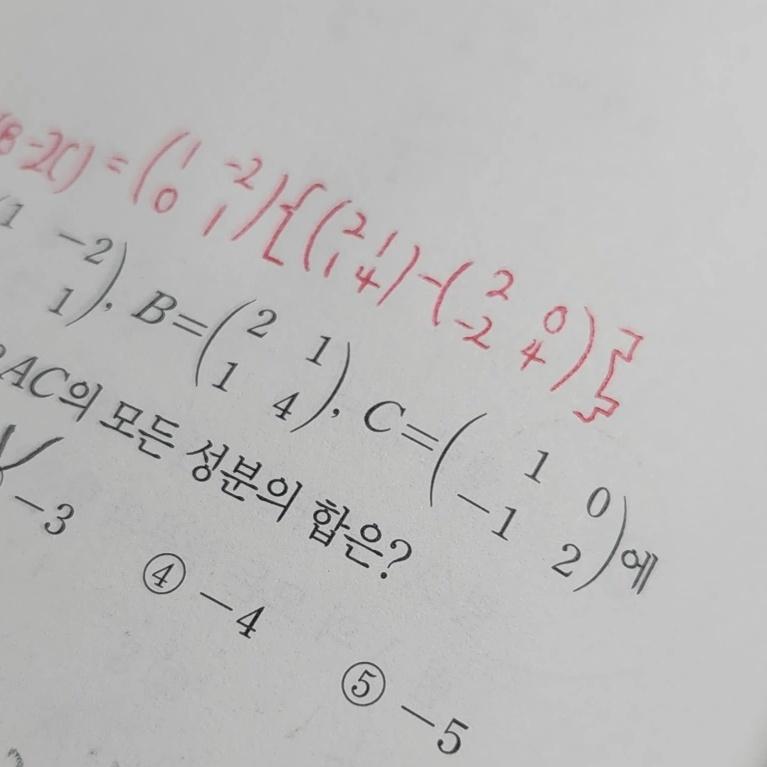 (B-2C) = (1 -2 0 1){(2 1 1 4)-(2 0 -2 4)}
(1 -2 1), B=(2 1 1 4), C=(1 0 -1 2)에
AC의 모든 성분의 합은?
-3 ④ -4 ⑤ -5